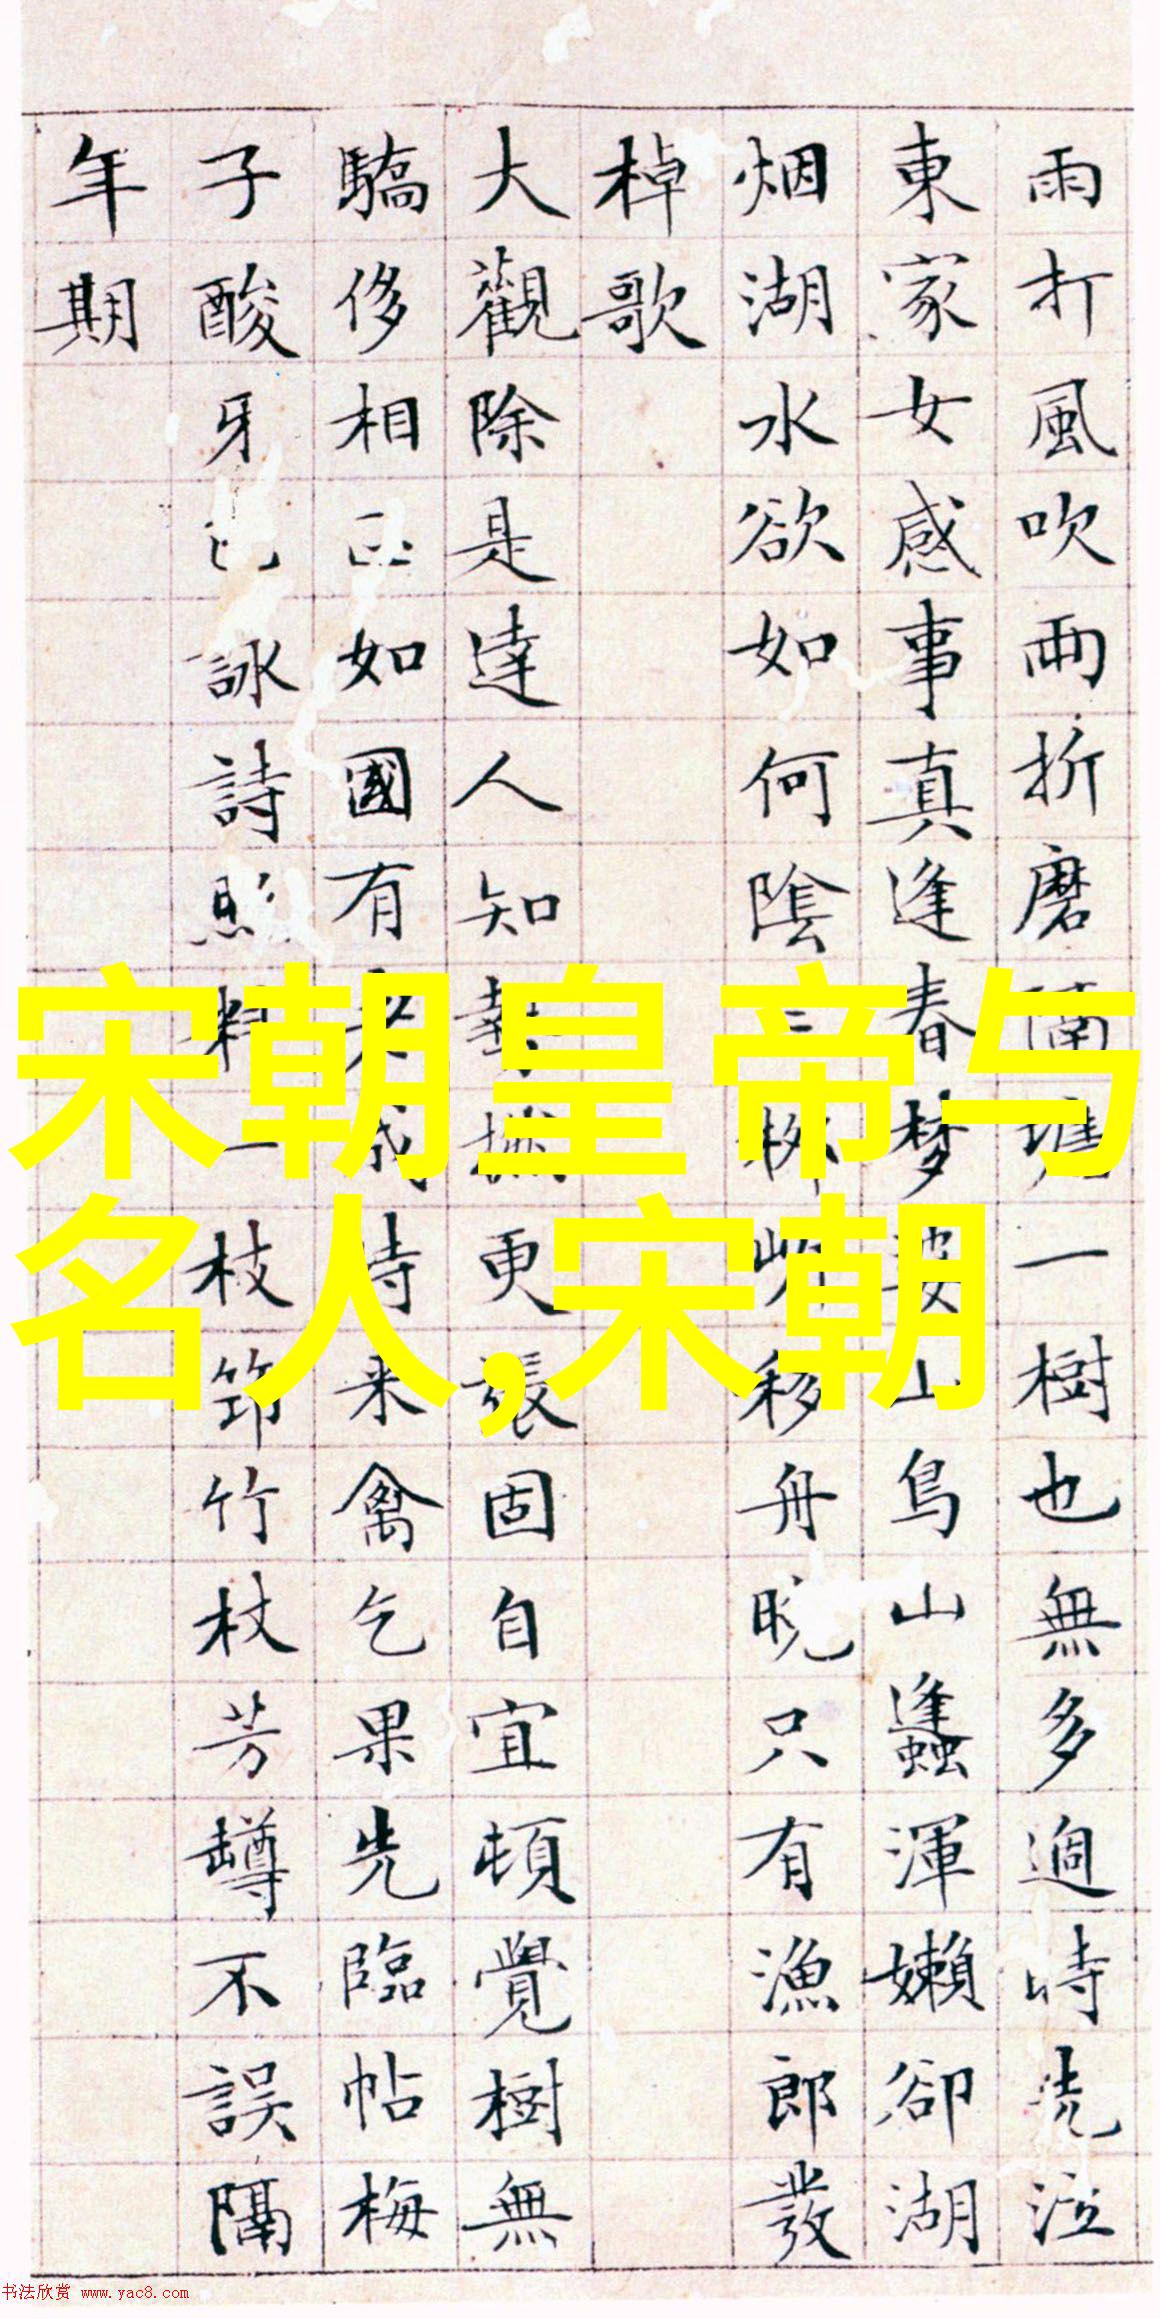 雨打風吹雨折磨隔墻一樹也無多過時洗泣
東家女感事真逢春夢婆山鳥山蟲渾嬾卻湖
烟湖水欲如何陰移舟晚只有漁郎發
棹歌
大觀除是達人知更張固自宜頓覺樹無
驕侈相如國有時来禽乞果先臨帖梅
子酸牙詠詩照料一枝筇竹杖芳罇不誤隔
年期
宋朝皇帝与
名人,宋朝
书法欣赏 www.yac8.com